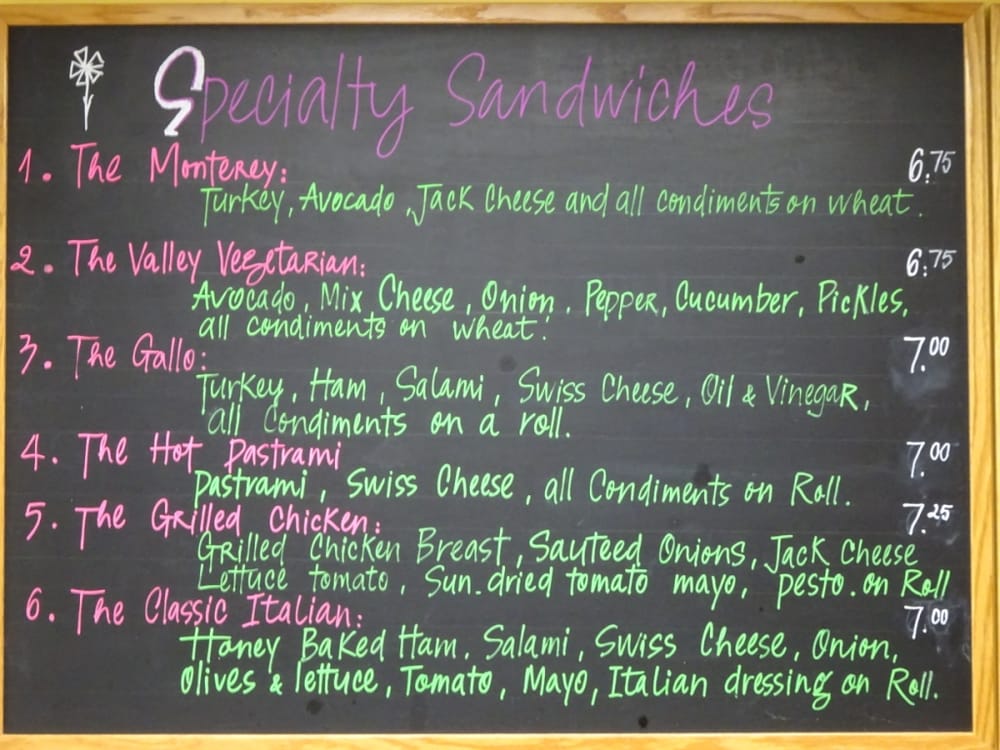 Specialty Sandwiches
1. The Monterey: 6.75
Turkey, Avocado, Jack Cheese and all condiments on wheat.
2. The Valley Vegetarian: 6.75
Avocado, Mix Cheese, Onion, Pepper, Cucumber, Pickles,
all condiments on wheat.
3. The Gallo: 7.00
Turkey, Ham, Salami, Swiss Cheese, Oil & Vinegar,
all Condiments on a roll.
4. The Hot Pastrami 7.00
Pastrami, Swiss Cheese, all Condiments on Roll.
5. The Grilled Chicken: 7.25
Grilled Chicken Breast, Sauteed Onions, Jack Cheese
Lettuce tomato, Sun.dried tomato mayo, pesto.on Roll
6. The Classic Italian: 7.00
Honey Baked Ham. Salami, Swiss Cheese, Onion,
Olives & lettuce, Tomato, Mayo, Italian dressing on Roll.